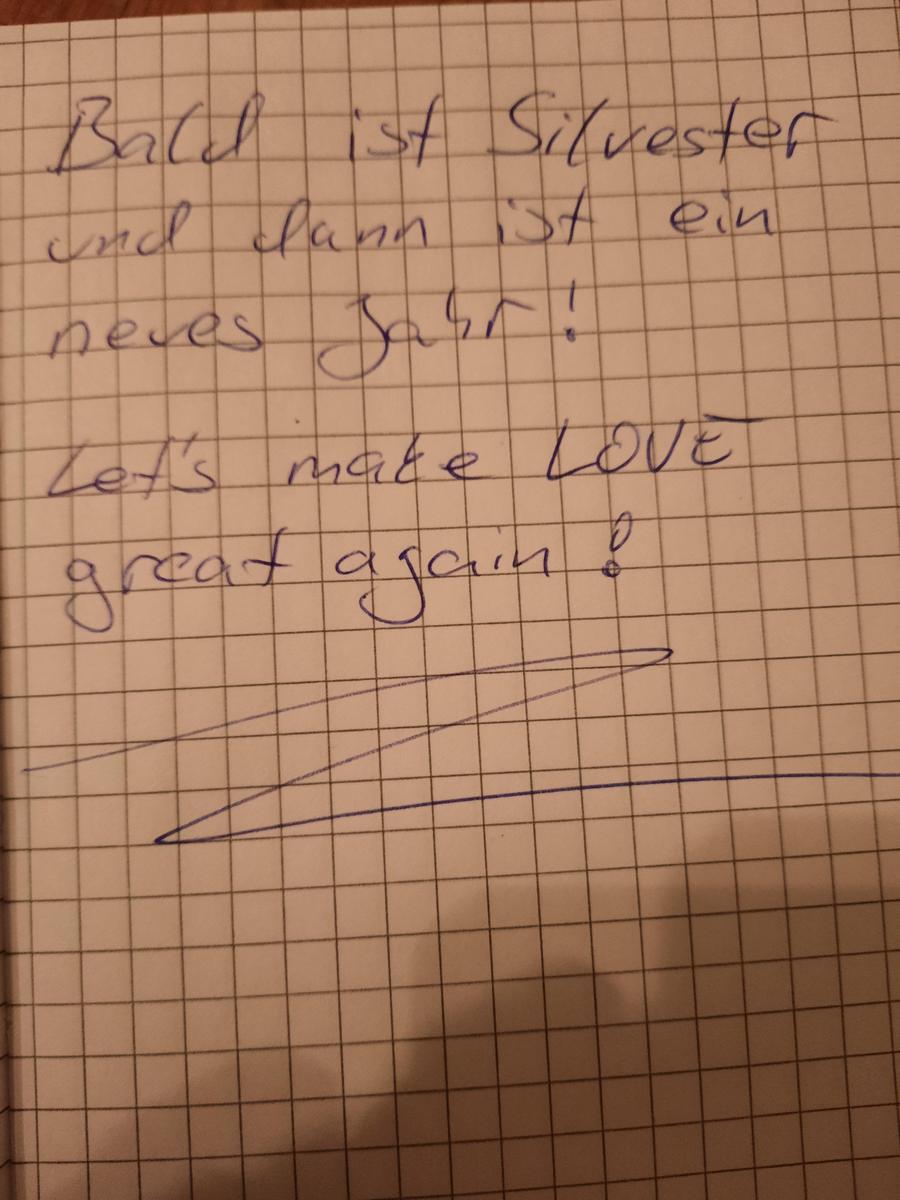 Bald ist Silvester
und dann ist ein
neues Jahr!
Let's make LOVE
great again!